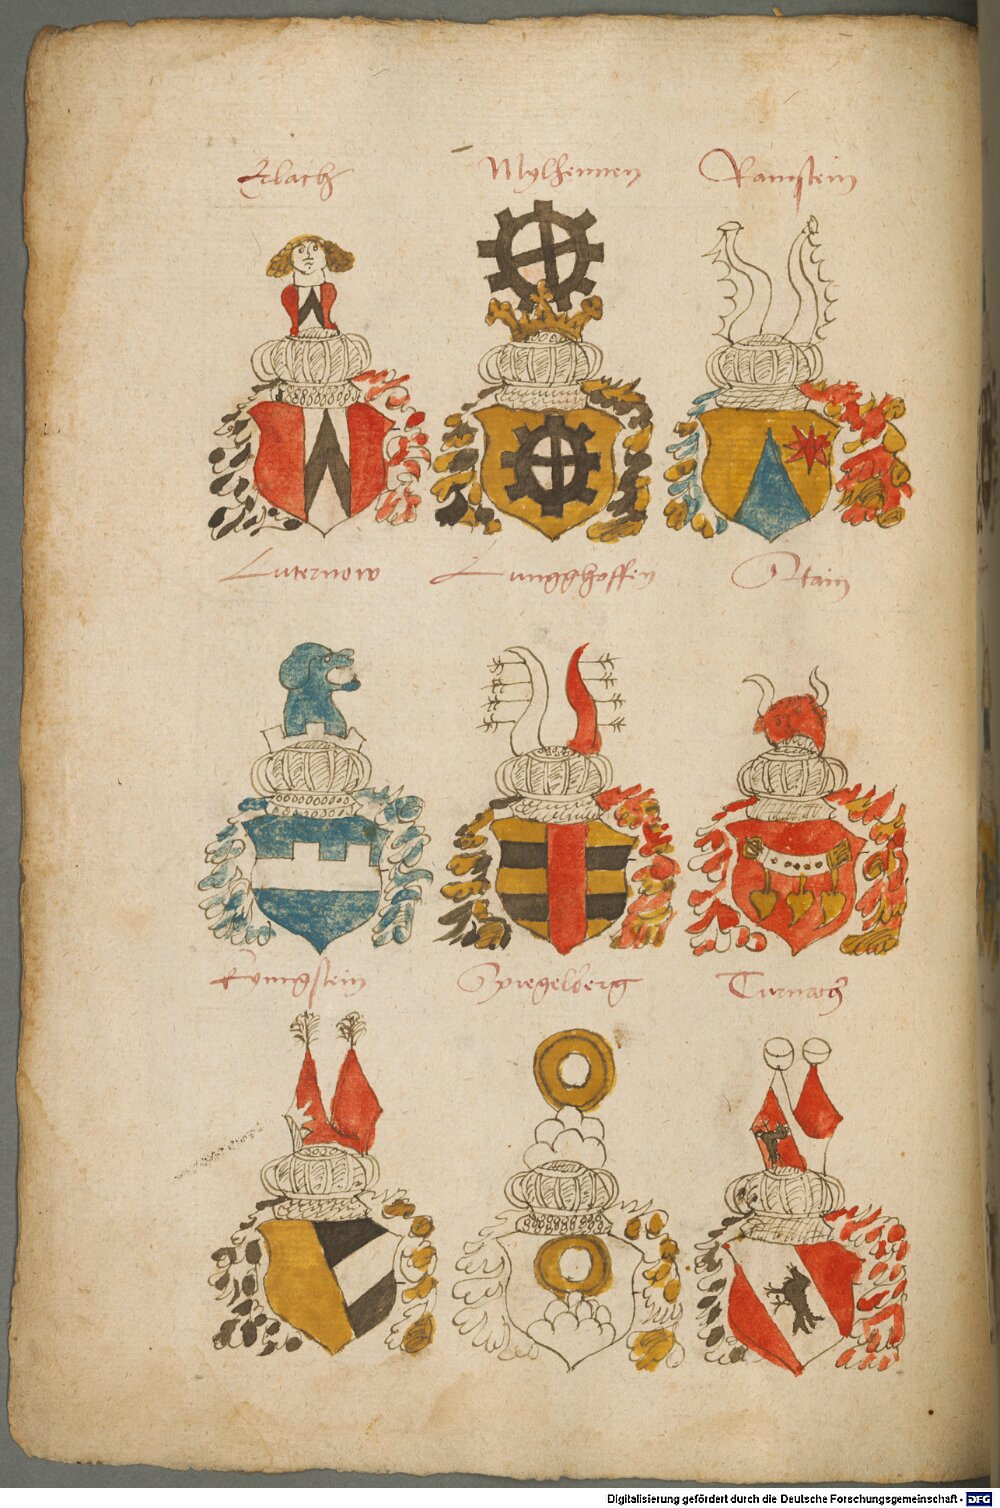 Erlach
Mylhennen
Ramstein
Luternow
Lungghoffen
Stain
Kunigstein
Spiegelberg
Turnach
Digitalisierung gefördert durch die Deutsche Forschungsgemeinschaft - DFG